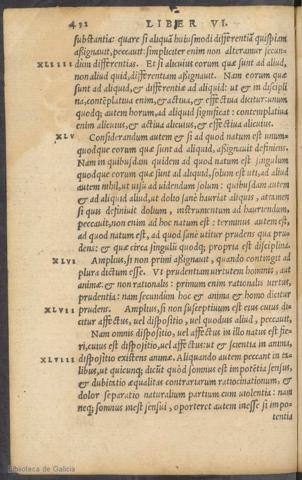 432 LIBER VI.
substantiæ: quare si aliquã huiusmodi differentiã quispiam
aßignauit, peccauit: simpliciter enim non alteramur secun-
XLIIII dum differentias. Et si alicuius eorum quæ sunt ad aliud,
non aliud quid, differentiam aßignauit. Nam eorum quæ
sunt ad aliquid, & differentiæ ad aliquid: ut & in discipli
na, contẽplatiua enim, & actiua, & effectiua dicitur: unum
quodq; autem horum, ad aliquid significat: contemplatiua
enim alicuius, & actiua alicuius, & effectiua alicuius.
XLV Considerandum autem & si ad quod natum est unum-
quodque eorum quæ sunt ad aliquid, aßignauit definiens.
Nam in quibusdam quidem ad quod natum est singulum
quodque eorum quæ sunt ad aliquid, solum est uti, ad aliud
autem nihil, ut uisu ad uidendum solum: quibusdam autem
& ad aliquid aliud, ut dolio sanè hauriat aliquis, attamen
si quis definiuit dolium, instrumentum ad hauriendum,
peccauit, non enim ad hoc natum est: terminus autem est,
ad quod natum est, ad quod sanè utitur prudens qua pru
dens: & quæ circa singula quodq; propria est disciplina.
XLVI Amplius, si non primi aßignauit, quando contingit ad
plura dictum esse. Vt prudentiam uirtutem hominis, aut
animæ, & non rationalis: primum enim rationalis uirtus,
prudentia: nam secundum hoc & anima & homo dicitur
XLVII prudens. Amplius, si non susceptiuum est eius cuius di-
citur affectus, uel dispositio, uel quoduis aliud, peccauit.
Nam omnis dispositio, uel affectus in illo natus est fie-
ri, cuius est dispositio, uel affectus: ut & scientia in anima,
XLVIII dispositio existens animæ. Aliquando autem peccant in ta
libus, ut quicunq; dicũt quòd somnus est impotẽtia sensus,
& dubitatio æqualitas contrariarum ratiocinationum, &
dolor separatio naturalium partium cum uiolentia: nam
neq; somnus inest sensui, oporteret autem inesse si impo-
tentia
Biblioteca de Galicia